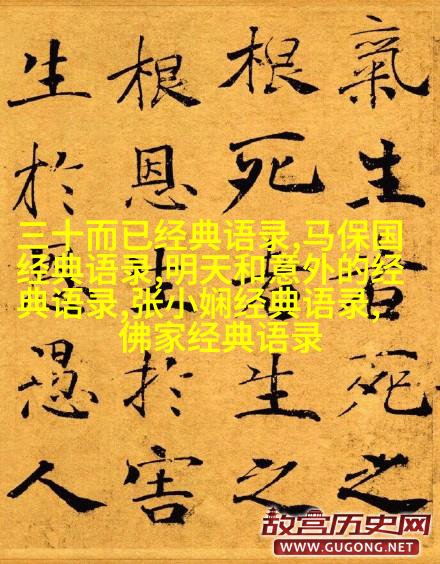 氣生者死之
根死者生之
根恩生於害
生於恩愚人
三十而已经典语录,马保国
经典语录,明天和意外的经
典语录,张小娴经典语录,
佛家经典语录
故宫历史网
WWW.GUGONG.NET